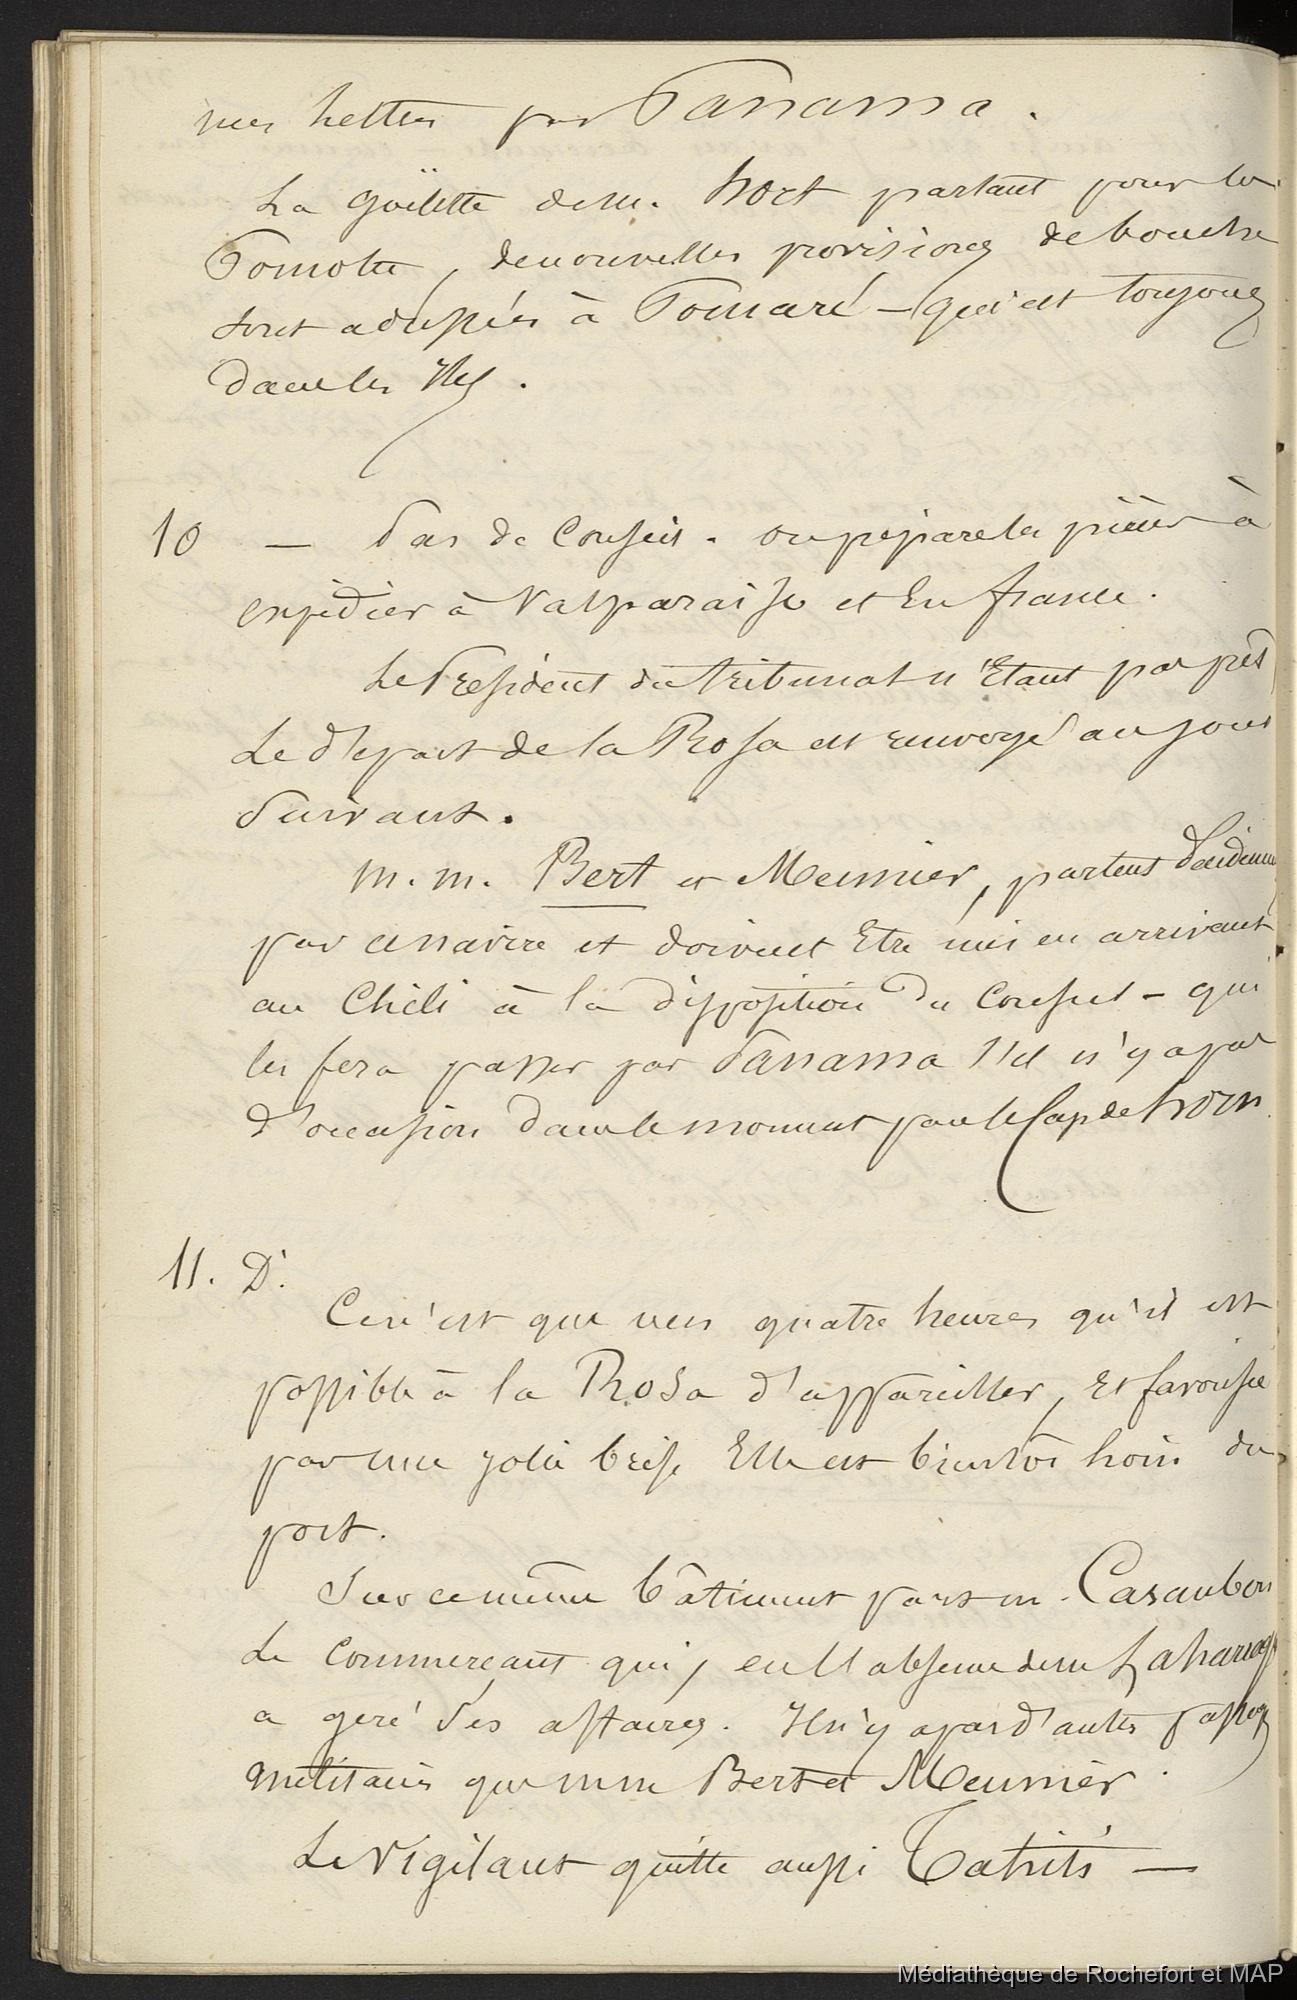 mes lettres par Panama.
La goëlette de M. Hort partant pour les
Pomotu, de nouvelles provisions de bouche
sont adressées à Pomaré – qui est toujours
dans les Iles.
10 — Pas de Conseil. On prépare les pièces à
expédier à Valparaiso et en france.
Le Président du tribunal n'étant pas prêt
Le départ de la Rosa est renvoyé au jour
Suivant.
M. M. Bert et Meunier, partent
par ce navire et doivent être mis en arrivant
au Chili à la disposition du Consul – qui
les fera passer par Panama s'il n'y a pas
d'occasion dans le moment par le Cap de horn.
11. D°.
Ce n'est que vers quatre heures qu'il est
possible à la Rosa d'appareiller, et favorisée
par une jolie brise Elle est bientôt hors du
port.
Sur ce même bâtiment part M. Casaubon
Le commerçant qui, en l'absence de M
a géré ses affaires. Il n'y a pas d'autres passagers
militaires que MM Bert et Meunier.
Le Vigilant quitte aussi Tahiti —
Médiathèque de Rochefort et MAP